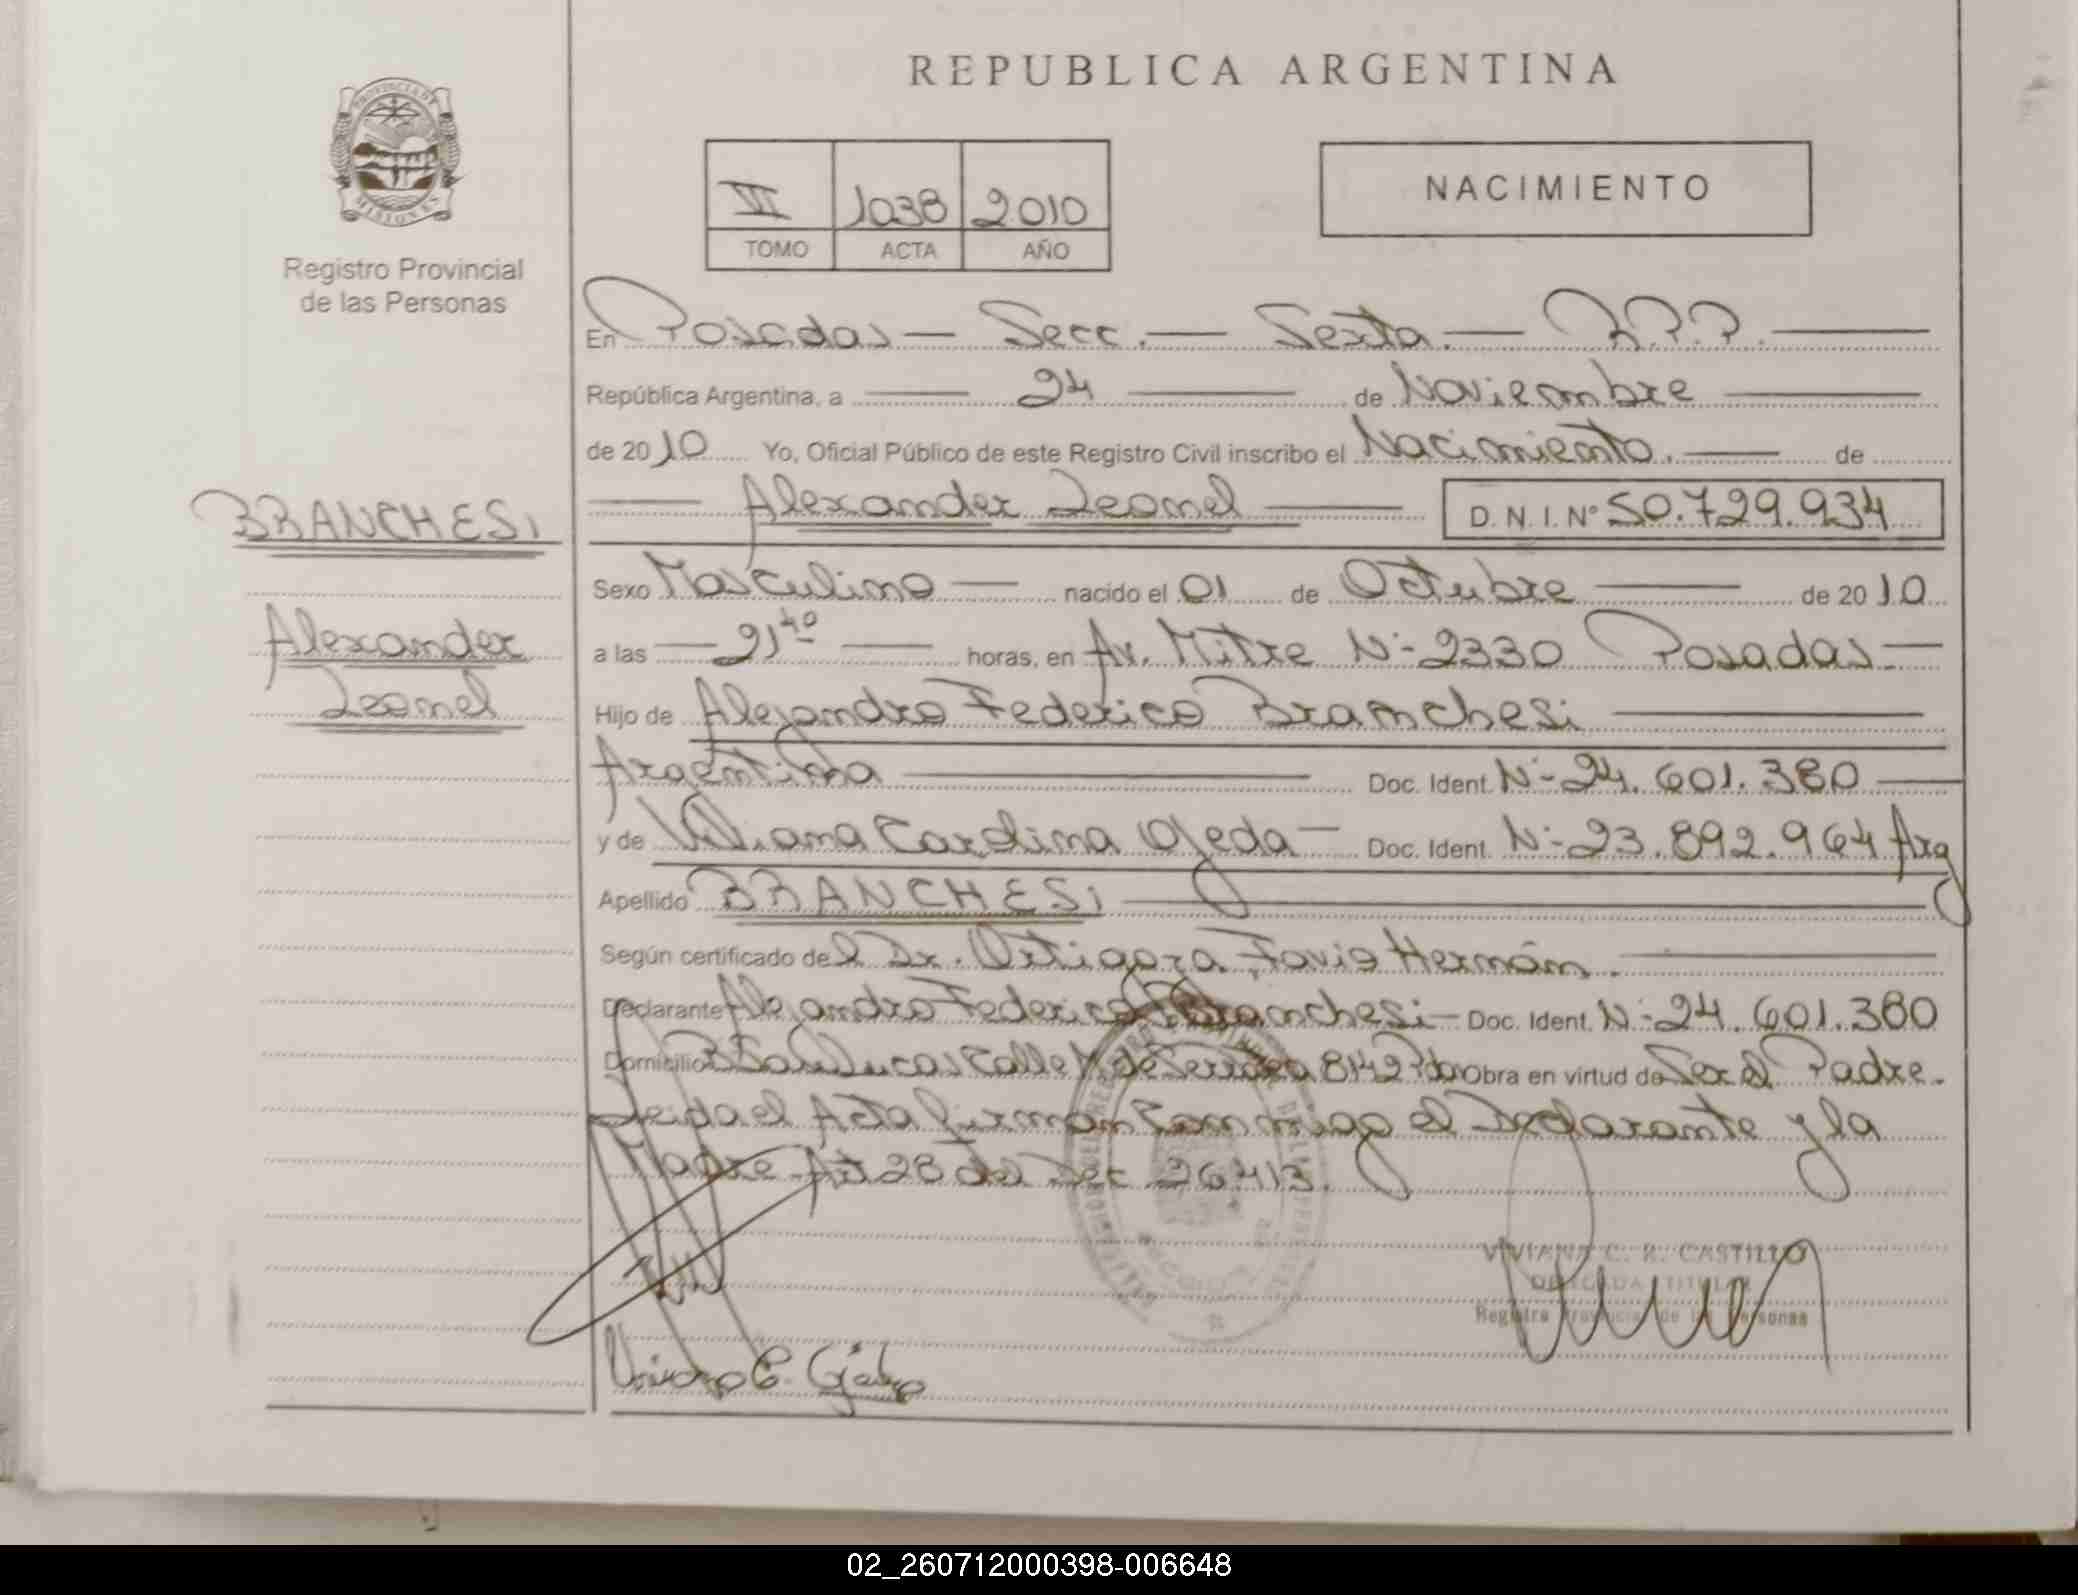 REPUBLICA ARGENTINA
PROVINCIA DE MISIONES
Registro Provincial
de las Personas
NACIMIENTO
VI 1038 2010
TOMO ACTA AÑO
En Posadas — Secc. — Sexta. — R.P.P. —
República Argentina, a — 24 — de Noviembre —
de 2010 Yo, Oficial Público de este Registro Civil inscribo el Nacimiento. — de
— Alexander Leonel — D. N. I. Nº 50.729.934
BRANCHESI
Alexander
Leonel
Sexo Masculino — nacido el 01 de Octubre — de 2010
a las — 21⁴⁰ — horas, en Av. Mitre N:- 2330 Posadas —
Hijo de Alejandro Federico Branchesi —
Argentina — Doc. Ident. N:- 24.601.380 —
y de Viviana Carolina Ojeda — Doc. Ident. N:- 23.892.964 Arg
Apellido BRANCHESI —
Según certificado del Dr. Ortigoza Favio Hernán. —
Declarante Alejandro Federico Branchesi — Doc. Ident. N:- 24.601.380
Domicilio Calle 8142 Pdas Obra en virtud de Ser el Padre.
Leida el Acta firman conmigo el Declarante y la
Madre Art 28 del Dec 26413.
VIVIANA C. R. CASTILLO
DELEGADA TITULAR
Registro Provincial de las Personas
Viviana C. Ojeda
02_260712000398-006648